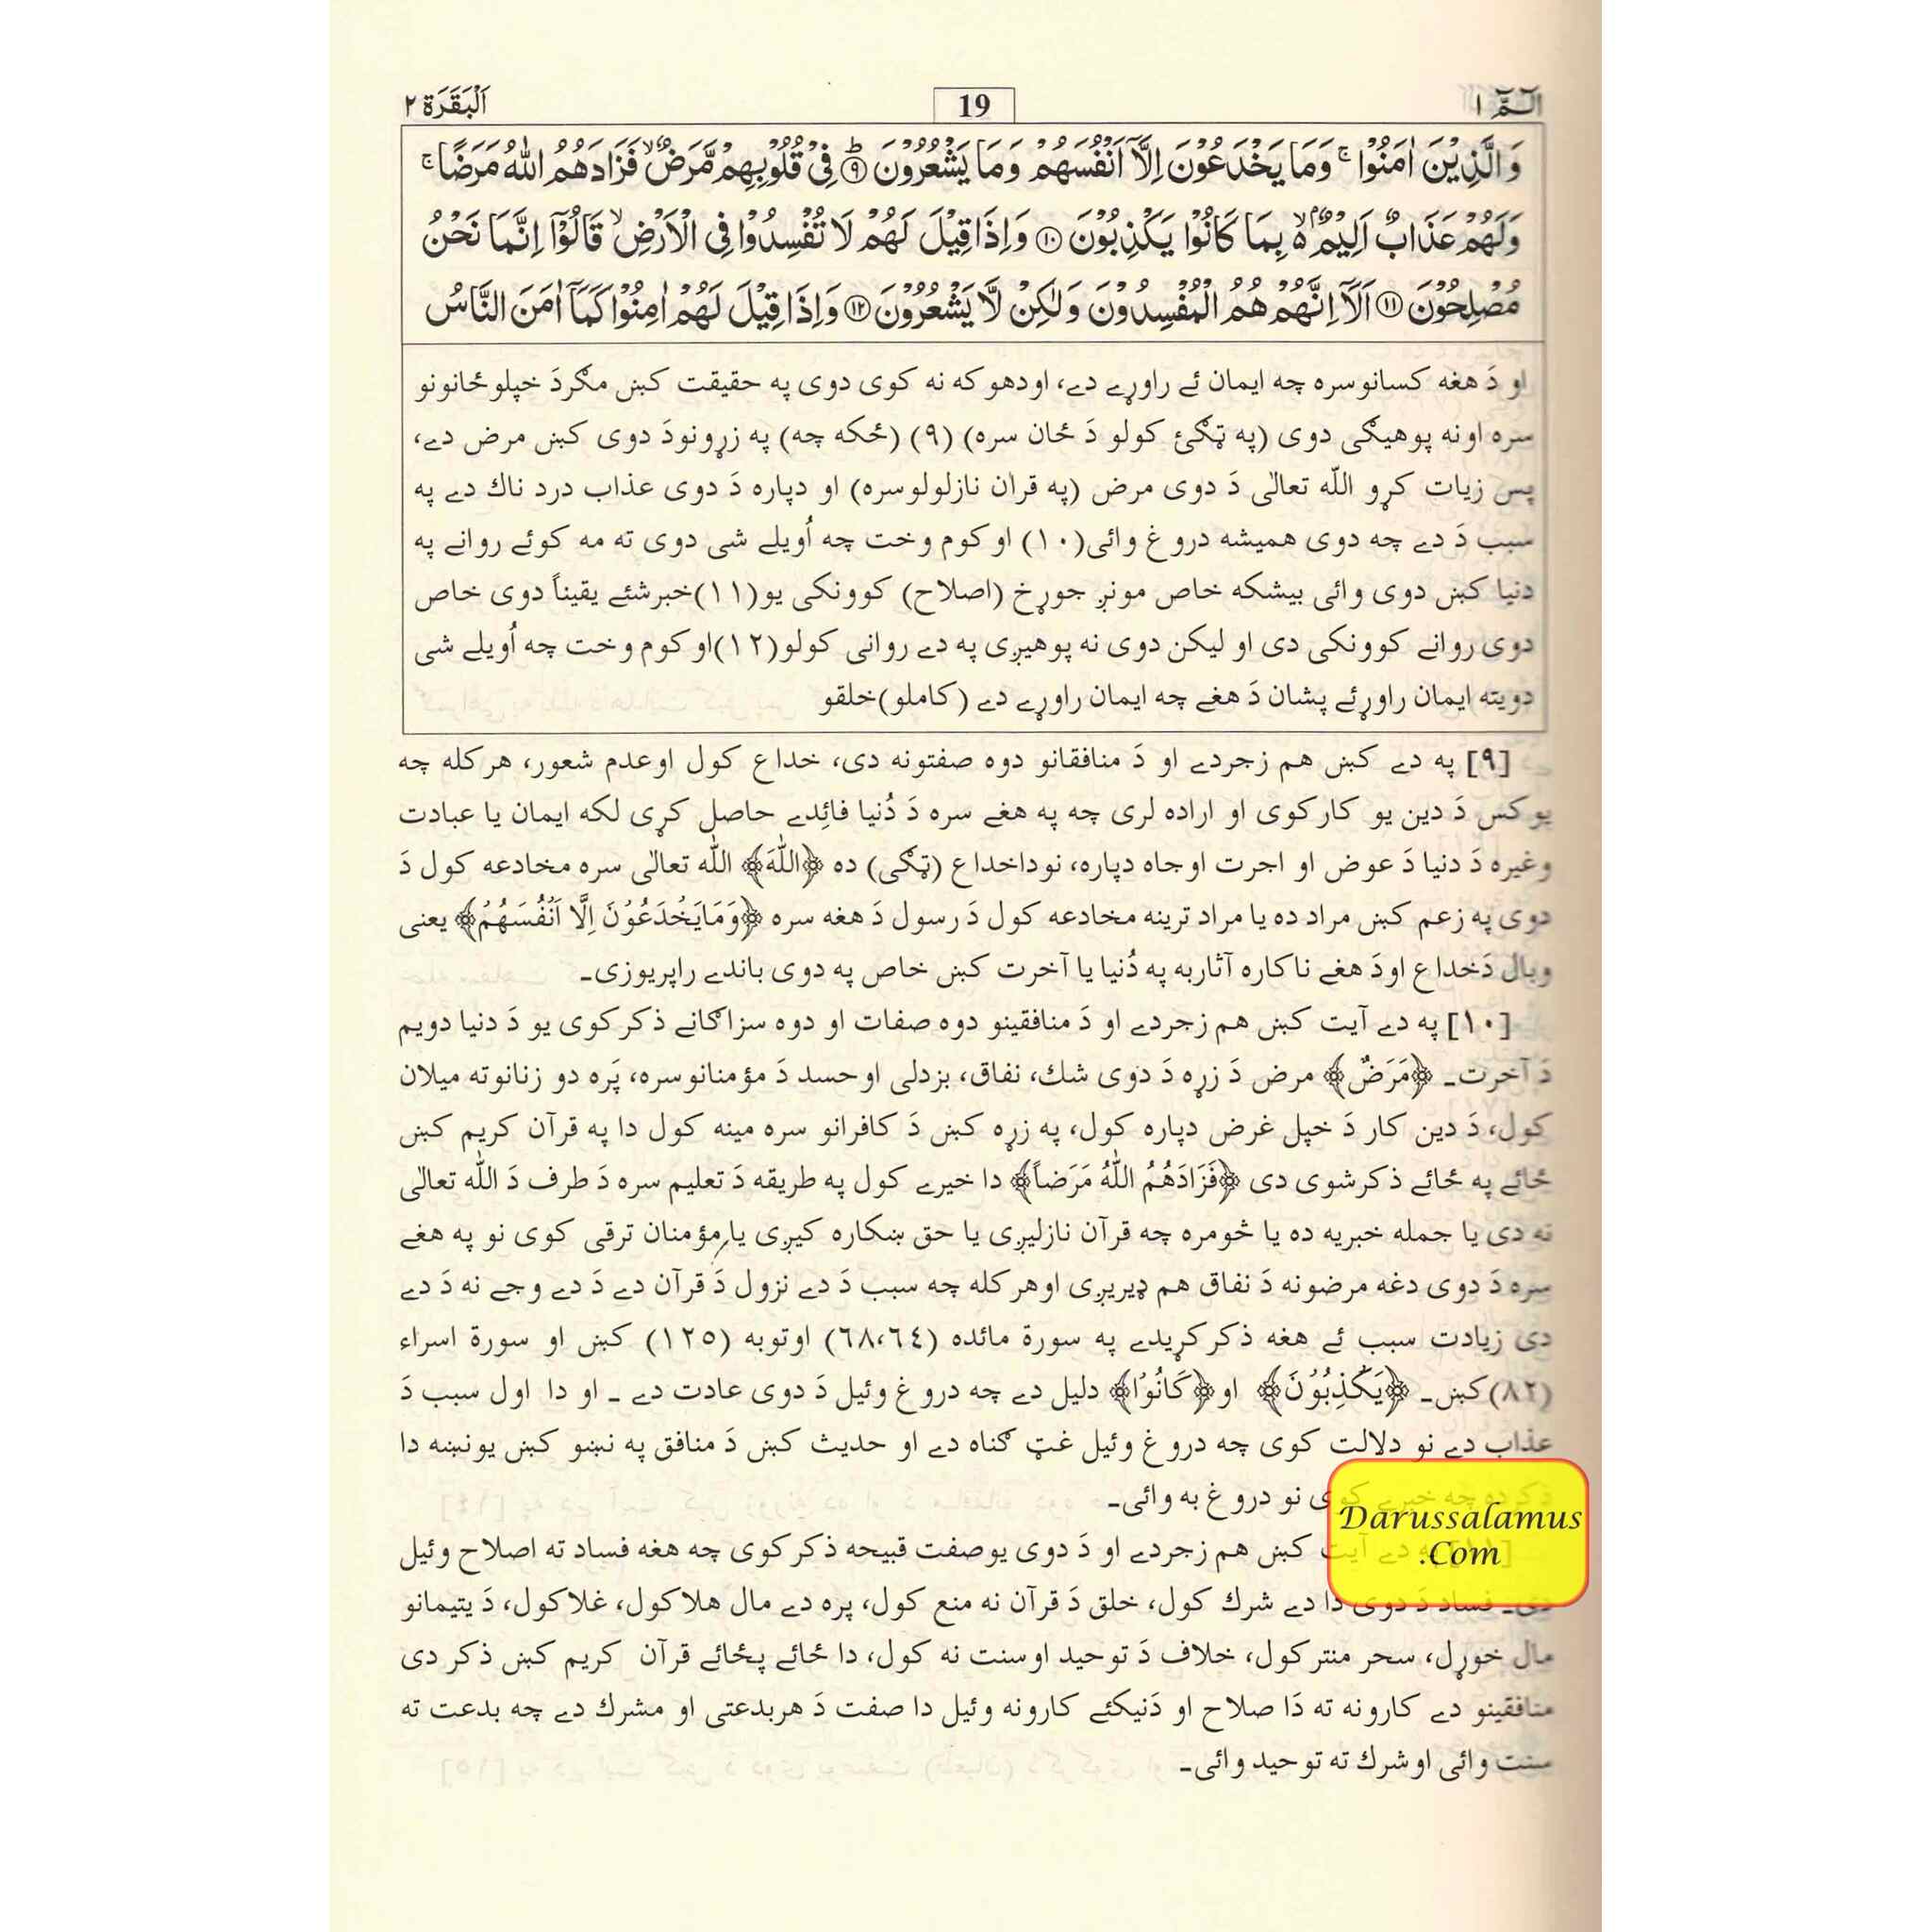 الٓمّٓ ١
19
اَلْبَقَرَة ٢
وَالَّذِيْنَ اٰمَنُوْا ۚ وَمَا يَخْدَعُوْنَ اِلَّآ اَنْفُسَهُمْ وَمَا يَشْعُرُوْنَ ؕ ۹ فِىْ قُلُوْبِهِمْ مَّرَضٌ ۙ فَزَادَهُمُ اللّٰهُ مَرَضًا ۚ
وَلَهُمْ عَذَابٌ اَلِيْمٌۢ ۙ۬ بِمَا كَانُوْا يَكْذِبُوْنَ ۱۰ وَاِذَا قِيْلَ لَهُمْ لَا تُفْسِدُوْا فِى الْاَرْضِ ۙ قَالُوْٓا اِنَّمَا نَحْنُ
مُصْلِحُوْنَ ۱۱ اَلَآ اِنَّهُمْ هُمُ الْمُفْسِدُوْنَ وَلٰكِنْ لَّا يَشْعُرُوْنَ ۱۲ وَاِذَا قِيْلَ لَهُمْ اٰمِنُوْا كَمَآ اٰمَنَ النَّاسُ
او دَ هغه كسانوسره چه ايمان ئے راوړے دے، اودهوكه نه كوى دوى په حقيقت كښ مګردَ خپلوځانونو
سره اونه پوهيګى دوى (په ټګئ كولو دَ ځان سره) (٩) (ځكه چه) په زړونودَ دوى كښ مرض دے،
پس زيات كړو اللّٰه تعالٰى دَ دوى مرض (په قران نازلولوسره) او دپاره دَ دوى عذاب درد ناك دے په
سبب دَ دے چه دوى هميشه دروغ وائى(١٠) اوكوم وخت چه اُويلے شى دوى ته مه كوئے روانے په
دنيا كښ دوى وائى بيشكه خاص مونږ جوړخ (اصلاح) كوونكى يو(١١)خبرشئے يقيناً دوى خاص
دوى روانے كوونكى دى او ليكن دوى نه پوهيږى په دے روانى كولو(١٢)اوكوم وخت چه اُويلے شى
دويته ايمان راوړئے پشان دَ هغے چه ايمان راوړے دے (كاملو)خلقو
[٩] په دے كښ هم زجردے او دَ منافقانو دوه صفتونه دى، خداع كول اوعدم شعور، هركله چه
يوكس دَ دين يو كاركوى او اراده لرى چه په هغے سره دَ دُنيا فائِدے حاصل كړى لكه ايمان يا عبادت
وغيره دَ دنيا دَ عوض او اجرت اوجاه دپاره، نوداخداع (ټګى) ده ﴿اللّٰهَ﴾ اللّٰه تعالٰى سره مخادعه كول دَ
دوى په زعم كښ مراد ده يا مراد ترينه مخادعه كول دَ رسول دَ هغه سره ﴿وَمَايَخْدَعُوْنَ اِلَّا اَنْفُسَهُمْ﴾ يعنى
وبال دَخداع اودَ هغے ناكاره آثاربه په دُنيا يا آخرت كښ خاص په دوى باندے راپريوزى۔
[١٠] په دے آيت كښ هم زجردے او دَ منافقينو دوه صفات او دوه سزاګانے ذكركوى يو دَ دنيا دويم
دَ آخرت۔ ﴿مَرَضٌ﴾ مرض دَ زړه دَ دوى شك، نفاق، بزدلى اوحسد دَ مؤمنانوسره، پَره دو زنانوته ميلان
كول، دَ دين كار دَ خپل غرض دپاره كول، په زړه كښ دَ كافرانو سره مينه كول دا په قرآن كريم كښ
ځائے په ځائے ذكرشوى دى ﴿فَزَادَهُمُ اللّٰهُ مَرَضاً﴾ دا خيرے كول په طريقه دَ تعليم سره دَ طرف دَ اللّٰه تعالٰى
نه دى يا جمله خبريه ده يا څومره چه قرآن نازليږى يا حق ښكاره كيږى يا مؤمنان ترقى كوى نو په هغے
سره دَ دوى دغه مرضونه دَ نفاق هم ډيريږى اوهركله چه سبب دَ دے نزول دَ قرآن دے دَ دے وجے نه دَ دے
دى زيادت سبب ئے هغه ذكركړيدے په سورة مائده (٦٨،٦٤) اوتوبه (١٢٥) كښ او سورة اسراء
(٨٢)كښ۔ ﴿يَكْذِبُوْنَ﴾ او﴿كَانُوْا﴾ دليل دے چه دروغ وئيل دَ دوى عادت دے ۔ او دا اول سبب دَ
عذاب دے نو دلالت كوى چه دروغ وئيل غټ ګناه دے او حديث كښ دَ منافق په نښو كښ يونښه دا
چه خبرے كوى نو دروغ به وائى۔
دے آيت كښ هم زجردے او دَ دوى يوصفت قبيحه ذكركوى چه هغه فساد ته اصلاح وئيل
دى۔ فساد دَ دوى دا دے شرك كول، خلق دَ قرآن نه منع كول، پره دے مال هلاكول، غلاكول، دَ يتيمانو
مال خوړل، سحر منتركول، خلاف دَ توحيد اوسنت نه كول، دا ځائے پځائے قرآن كريم كښ ذكر دى
منافقينو دے كارونه ته دَا صلاح او دَنيكئے كارونه وئيل دا صفت دَ هربدعتى او مشرك دے چه بدعت ته
سنت وائى اوشرك ته توحيد وائى۔
Darussalamus
.Com